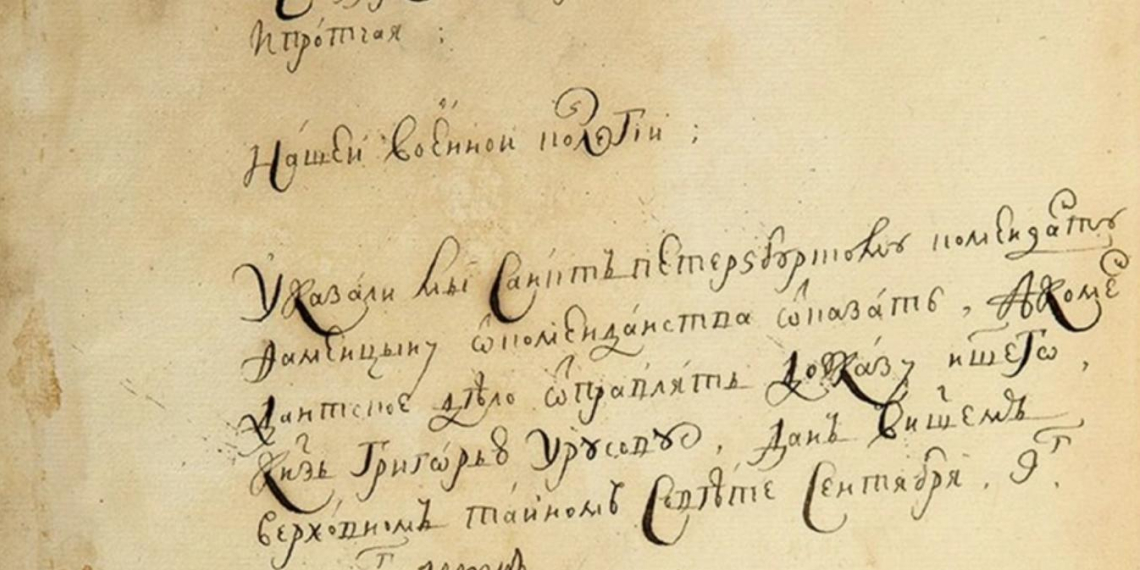 Ипротчая :
Нашеи Военнои колегiи ;
Указали мы Санктъ петерзбургскому коменданту
Ѡкоменданства ѿказать , Акоме
дантское дѣло ѿправлять доѸказу ншего ,
Кнзь Григорью Урусову , Данъ Внашемъ
верховномъ таиномъ Совѣте Сентября . 9г .